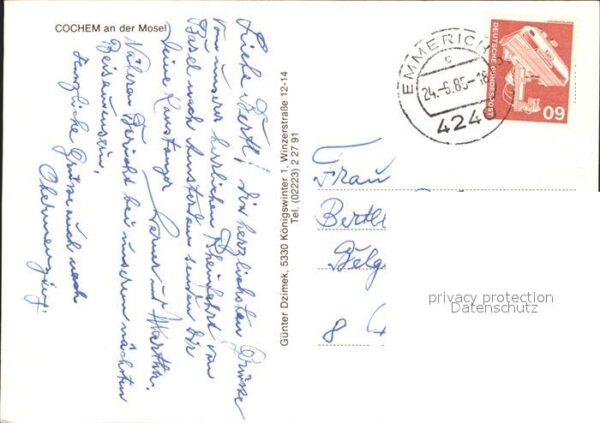 COCHEM an der Mosel
Liebe Bertl! Die herzlichsten Grüsse
von unserer herrlichen Rheinfahrt von
Basel nach Amsterdam senden Dir
Deine Werner und Martha.
Näheren Bericht bei unserem nächsten
Beisammensein.
Herzliche Grüsse auch nach
Obermenzing.
Günter Dzimek, 5330 Königswinter 1, Winzerstraße 12-14
Tel. (02223) 2 27 91
EMMERICH
c
24.-6.85-18
424
DEUTSCHE BUNDESPOST
60
Frau
Bertl
Belg
8
privacy protection
Datenschutz